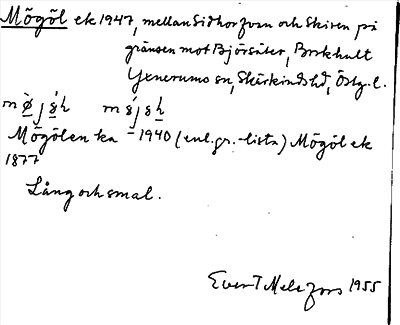 Mögöl ek 1947, mellan Sidhorfvan och Skiren på
gränsen mot Björsäter, Borkhult
Yxnerums sn, Skärkinds hd, Östg. l.
Mögölen ka - 1940 (enl. gr.-lista) Mögöl ek
1877
Lång och smal.
Evert Melefors 1955